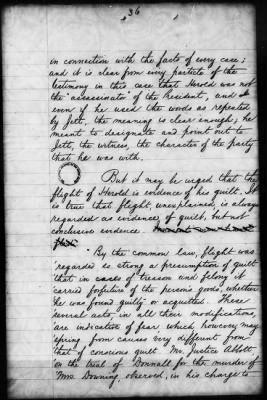 36
in connection with the facts of every case;
and it is clear from every particle of the
testimony in this case that Herold was not
the "assassinator of the President, and
even if he used the words as repeated
by Jett, the meaning is clear enough; he
meant to designate and point out to
Jett, the witness, the character of the party
that he was with.
But it may be urged that the
flight of Herold is evidence of his guilt. It
is true that flight, unexplained, is always
regarded as evidence of guilt, but not
conclusive evidence.
"By the common law, flight was
regarded so strong a presumption of guilt
that in cases of treason and felony it
carried forfeiture of the person's goods, whether
he was found guilty or acquitted. These
several acts, in all their modifications,
are indicative of fear, which however may
spring from causes very different from
that of conscious guilt. Mr. Justice Abbott
on the trial of Donnall for the murder of
Mrs. Downing, observed, in his charge to